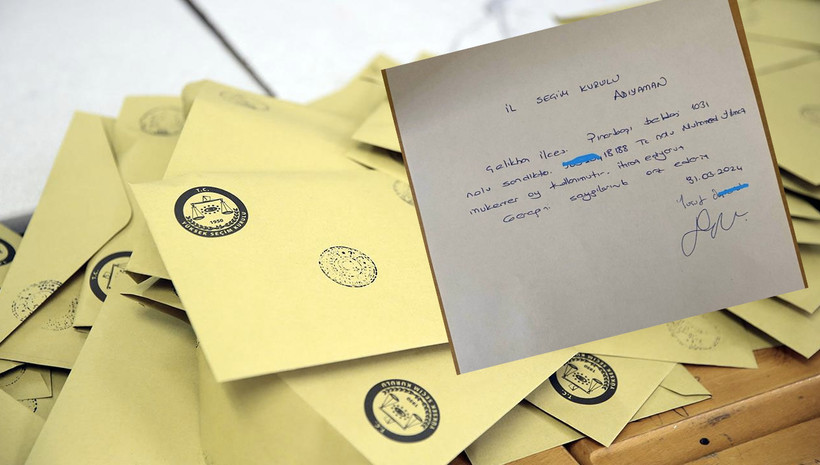 İL SEÇİM KURULU
ADIYAMAN
Çelikhan ilçesi Pınarbaşı beldesi 1031
nolu sandıkta 18188 Tc nolu Muhammed Yılmaz
mükerrer oy kullanmıştır. itiraz ediyorum
Gereğini saygılarımla arz ederim
31.03.2024
Yusuf
T.C.
1950
YÜKSEK SEÇİM KURULU
T.C.
1950
YÜKSEK SEÇİM KURULU
T.C.
1950
YÜKSEK SEÇİM KURULU